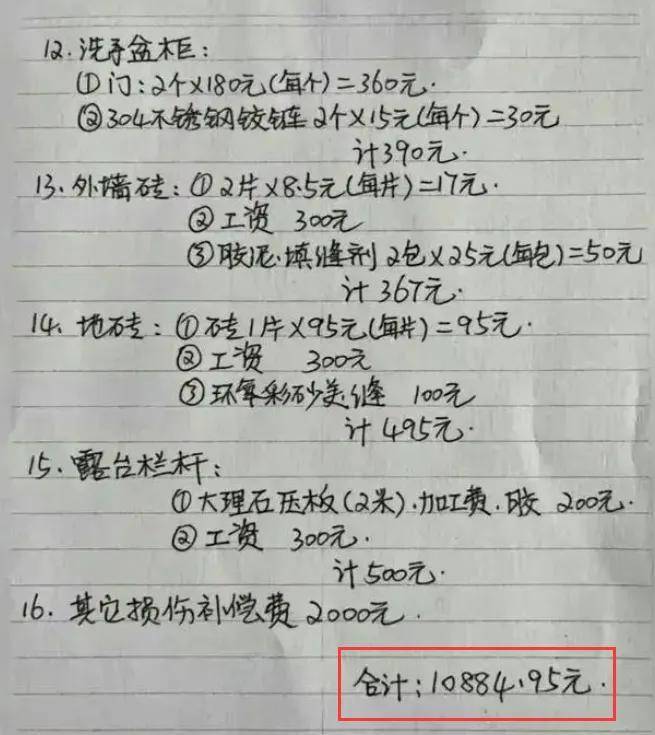 12. 洗手盆柜:
① 门: 2个×180元(每个)=360元.
② 304不锈钢铰链 2个×15元(每个)=30元
计390元.
13. 外墙砖: ① 2片×8.5元(每片)=17元.
② 工资 300元
③ 胶泥.填缝剂 2包×25元(每包)=50元
计367元.
14. 地砖: ① 砖1片×95元(每片)=95元.
② 工资 300元
③ 环氧彩砂美缝 100元
计495元.
15. 露台栏杆:
① 大理石压板(2米).加工费.胶 200元.
② 工资 300元.
计500元.
16. 其它损伤补偿费2000元.
合计: 10884.95元.